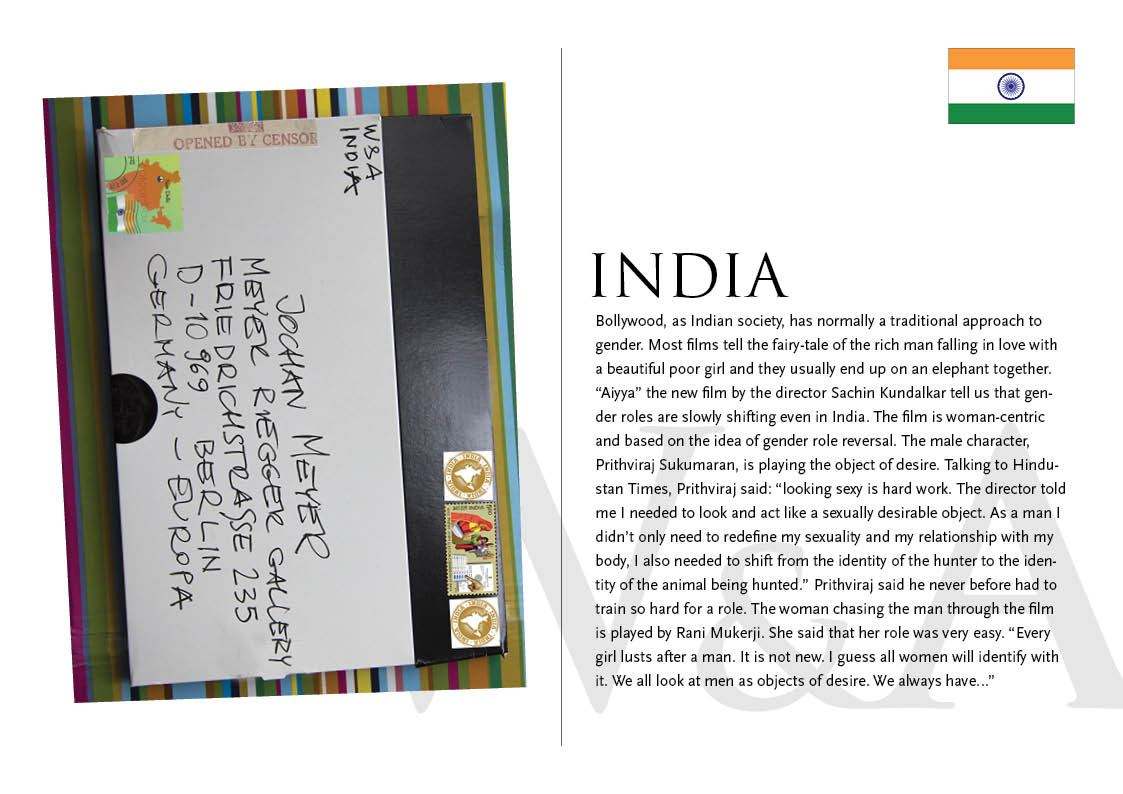 OPENED BY CENSOR
W&A
INDIA
JOCHAN MEYER
MEYER RIEGGER GALLERY
FRIEDRICHSTRASSE 235
D-10969 BERLIN
GERMANY - EUROPA
INDIA
INDIA
Bollywood, as Indian society, has normally a traditional approach to
gender. Most films tell the fairy-tale of the rich man falling in love with
a beautiful poor girl and they usually end up on an elephant together.
“Aiyya” the new film by the director Sachin Kundalkar tell us that gen-
der roles are slowly shifting even in India. The film is woman-centric
and based on the idea of gender role reversal. The male character,
Prithviraj Sukumaran, is playing the object of desire. Talking to Hindu-
stan Times, Prithviraj said: “looking sexy is hard work. The director told
me I needed to look and act like a sexually desirable object. As a man I
didn’t only need to redefine my sexuality and my relationship with my
body, I also needed to shift from the identity of the hunter to the iden-
tity of the animal being hunted.” Prithviraj said he never before had to
train so hard for a role. The woman chasing the man through the film
is played by Rani Mukerji. She said that her role was very easy. “Every
girl lusts after a man. It is not new. I guess all women will identify with
it. We all look at men as objects of desire. We always have...”
W&A